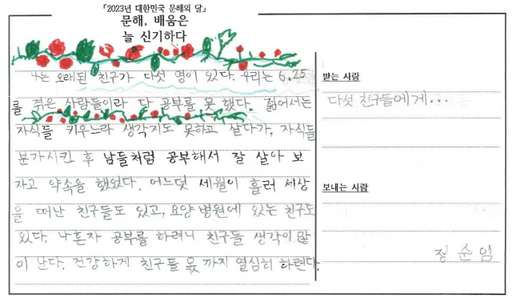 「2023년 대한민국 문해의 달」
문해, 배움은
늘 신기하다
나는 오래된 친구가 다섯 명이 있다. 우리는 6.25
를 겪은 사람들이라 다 공부를 못 했다. 젊어서는
자식들 키우느라 생각지도 못하고 살다가, 자식들
분가시킨 후 남들처럼 공부해서 잘 살아 보
자고 약속을 했었다. 어느덧 세월이 흘러 세상
을 떠난 친구들도 있고, 요양 병원에 있는 친구도
있다. 나혼자 공부를 하려니 친구들 생각이 많
이 난다. 건강하게 친구들 몫 까지 열심히 하련다.
받는 사람
다섯 친구들에게...
보내는 사람
정순임